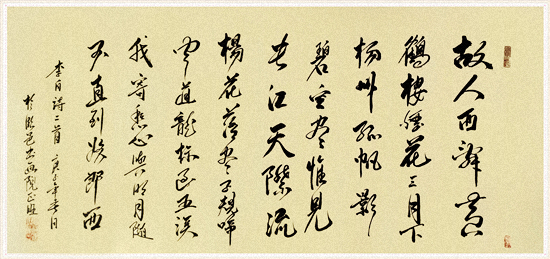 故人西辭黃
鶴樓煙花三月下
揚州孤帆影
碧空盡惟見
長江天際流
楊花落盡子規啼
聞道龍標過五溪
我寄愁心與明月隨
直到夜郎西
李白詩二首 年春月
於邑書畫院